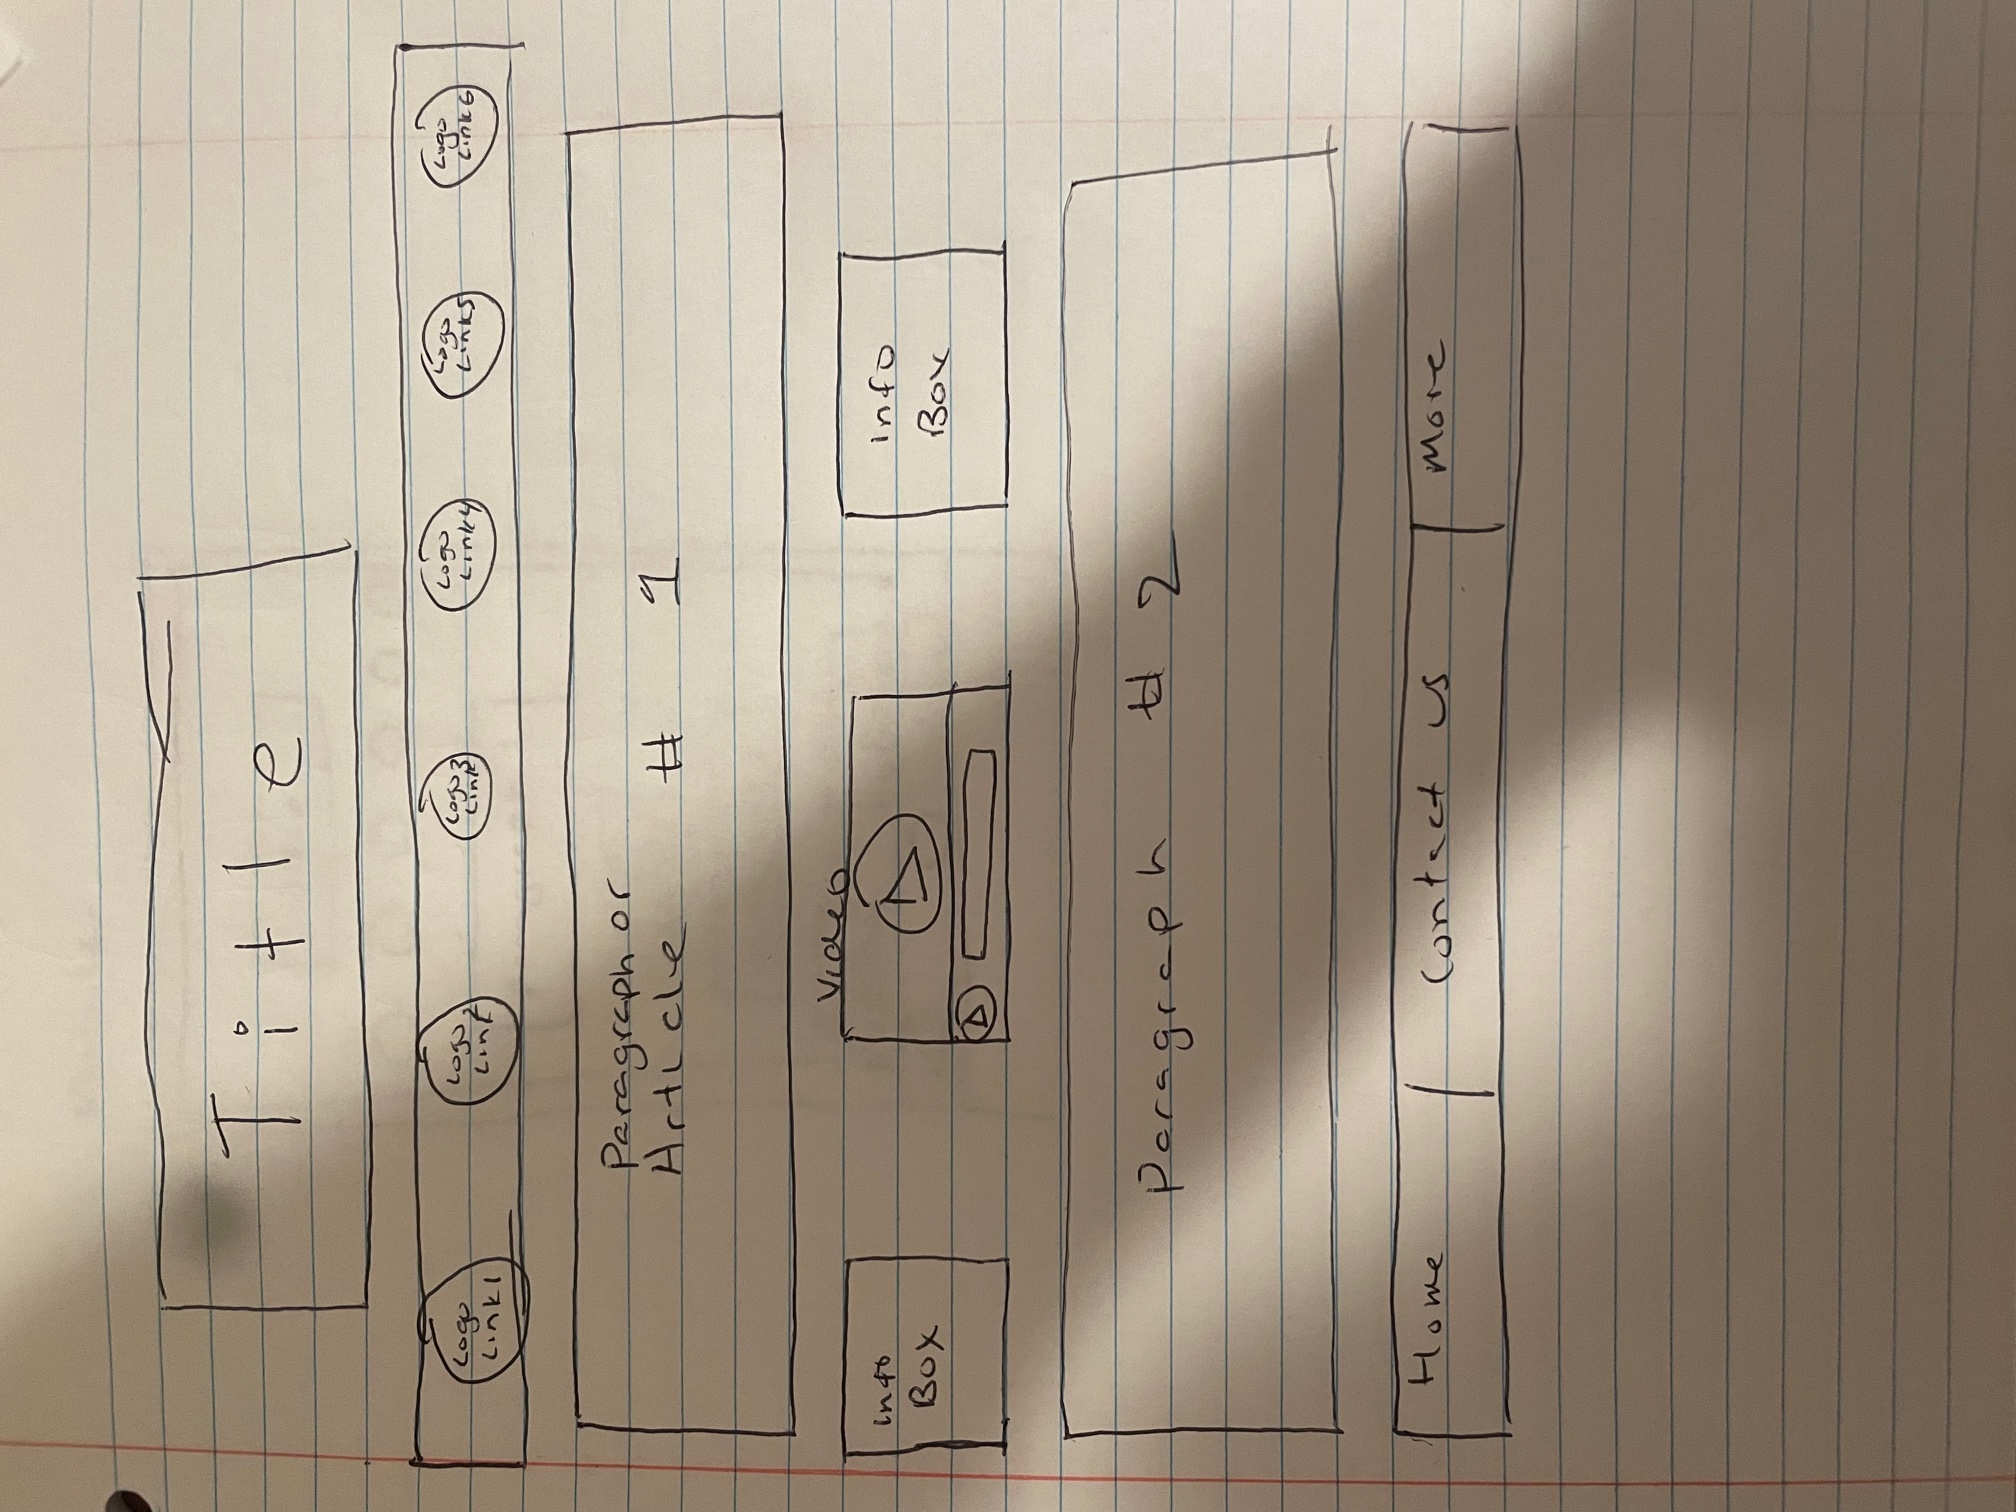 Title
Logo
Link1
Logo 2
Link
Logo 3
Link
Logo
Link4
Logo
Link5
Logo
Link6
Paragraph or
Article # 1
Info
Box
Video
Info
Box
Paragraph # 2
Home
Contact us
More